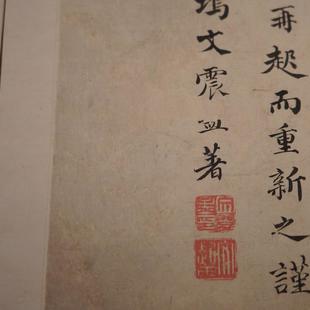 再起而重新之謹
塢文震孟著